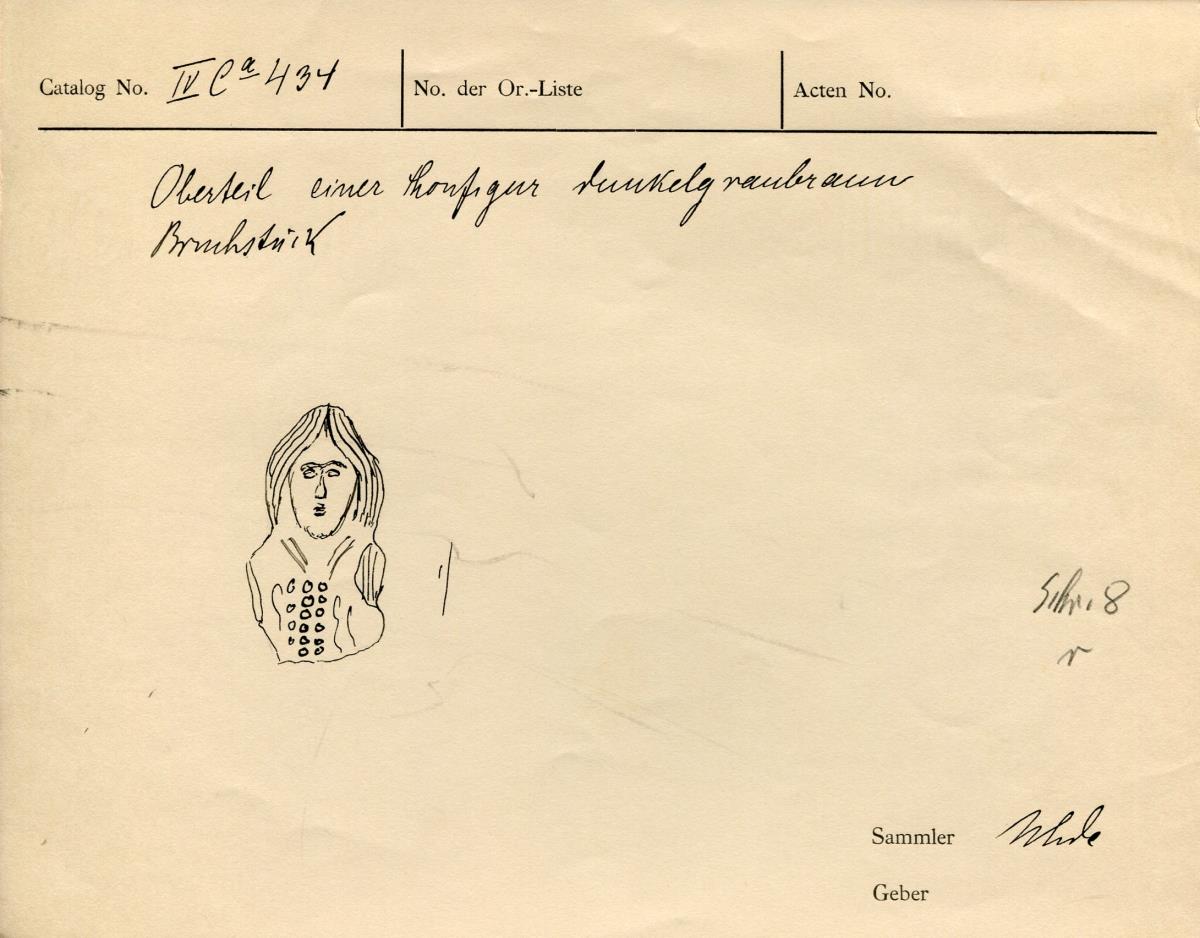 Catalog No. IV Ca 434
No. der Or.-Liste
Acten No.
Oberteil einer Thonfigur dunkelgraubraun
Bruchstück
Schr. 8
r
Sammler Uhde
Geber